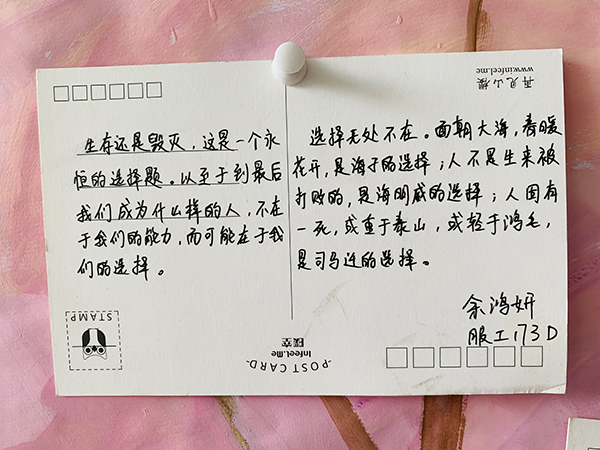 生存还是毁灭，这是一个永
恒的选择题。以至于到最后
我们成为什么样的人，不在
于我们的能力，而可能在于我
们的选择。
选择无处不在。面朝大海，春暖
花开，是海子的选择；人不是生来被
打败的，是海明威的选择；人固有
一死，或重于泰山，或轻于鸿毛，
是司马迁的选择。
余鸿妍
服工173D
再见山楼
www.infeel.me
STAMP
-POST CARD-
Infeel.Me